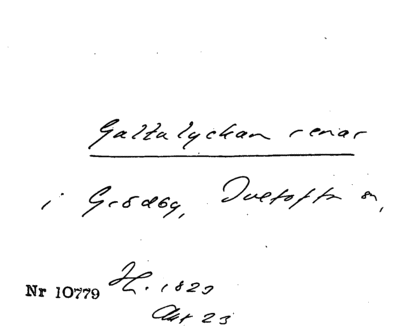 Galtalyckan renar
i Grödby, Tveta sn,
Nr 10779 H. 1823
Akt 23